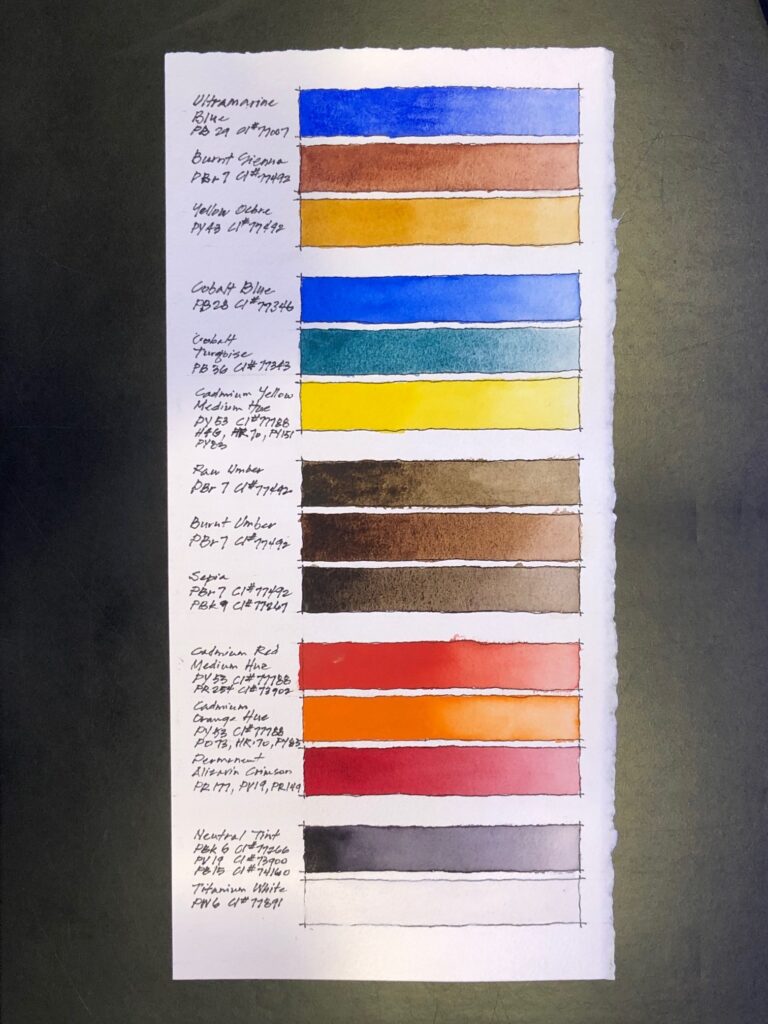 Ultramarine
Blue
PB 29 CI#77007
Burnt Sienna
PBr 7 CI#77492
Yellow Ochre
PY43 CI#77492
Cobalt Blue
PB28 CI#77346
Cobalt
Turquoise
PB 36 CI#77343
Cadmium Yellow
Medium Hue
PY53 CI#77788
PY151
PY83
Raw Umber
PBr 7 CI#77492
Burnt Umber
PBr 7 CI#77492
Sepia
PBr 7 CI#77492
PBk 9 CI#77267
Cadmium Red
Medium Hue
PY53 CI#77788
PR254 CI#73902
Cadmium
Orange Hue
PY53 CI#77788
PO73, HR.70, PY83
Permanent
Alizarin Crimson
PR177, PV19, PR149
Neutral Tint
PBk 6 CI#77266
PV19 CI#73900
PB15 CI#74160
Titanium White
PW6 CI#77891